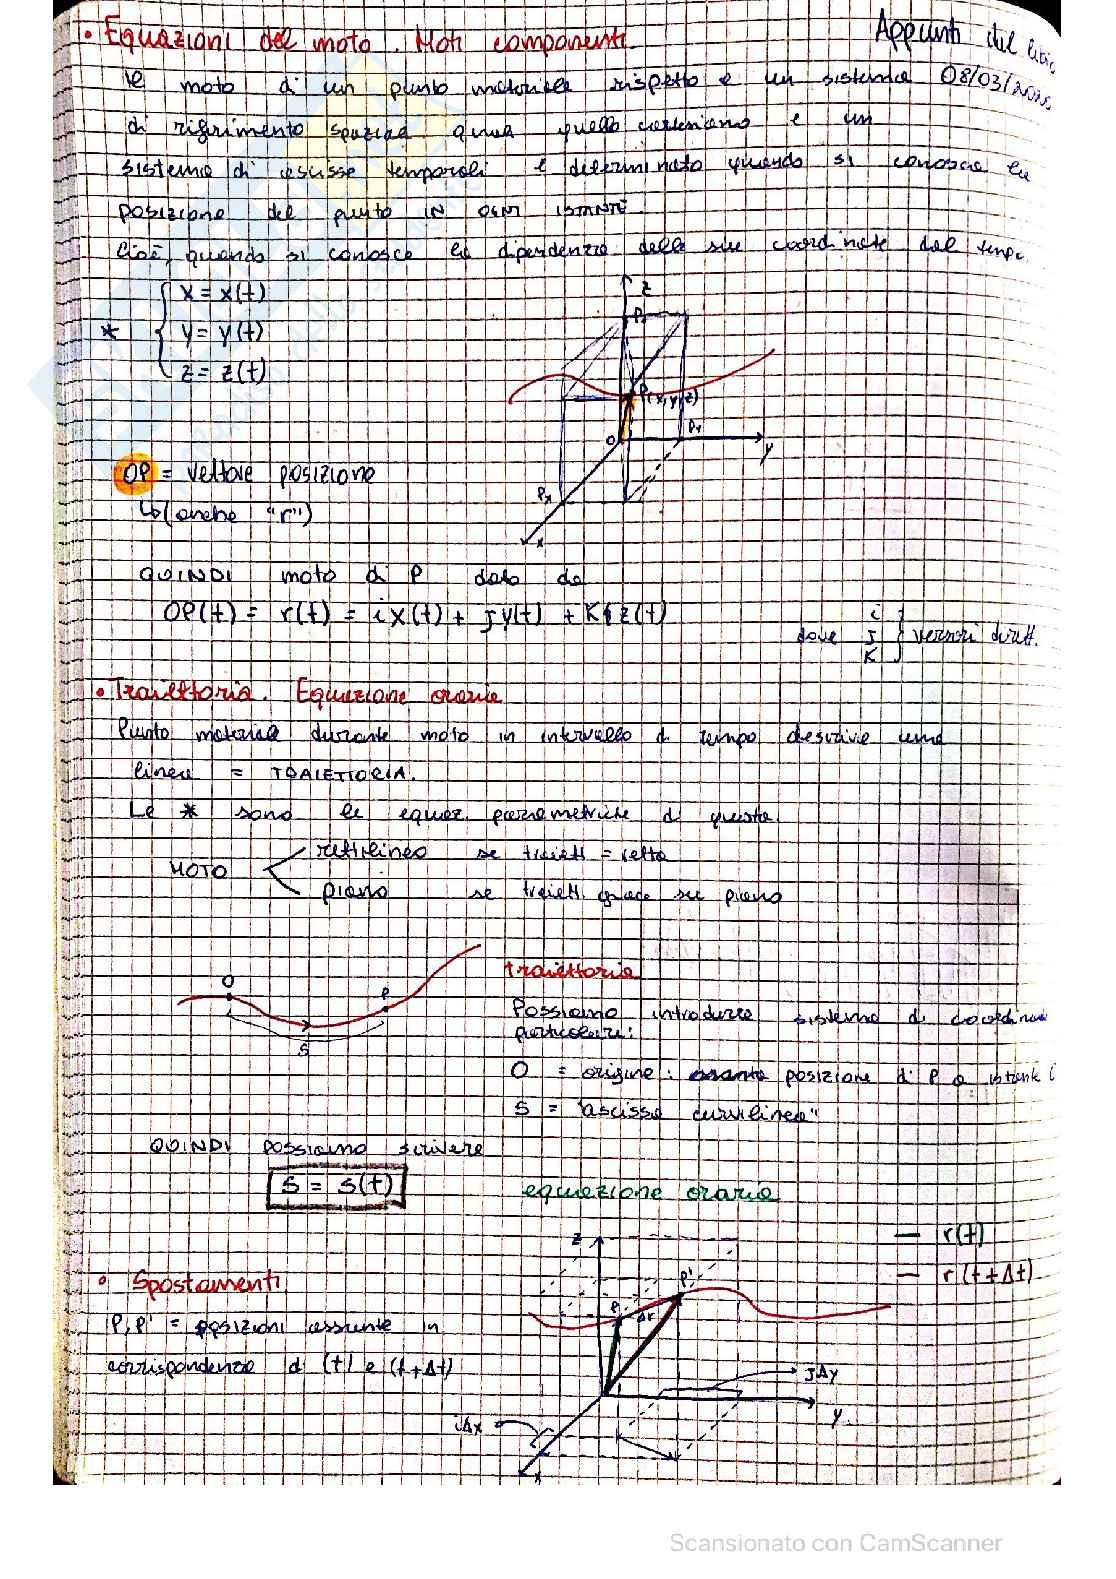 • Equazioni del moto. Moti componenti.
Appunti del libro
08/03/2022
Il moto di un punto materiale rispetto a un sistema
di riferimento spaziale quale quello cartesiano e un
sistema di ascisse temporali è determinato quando si conosce la
posizione del punto IN OGNI ISTANTE.
Cioè, quando si conosce la dipendenza delle sue coordinate dal tempo
* { x = x(t)
y = y(t)
z = z(t)
z
P(x,y,z)
O
Py
y
Px
x
OP = vettore posizione
↳ (anche "r")
QUINDI moto di P dato da
OP(t) = r(t) = i x(t) + j y(t) + k z(t)
dove i j k } versori dirett.
• Traiettoria. Equazione oraria
Punto materiale durante moto in intervallo di tempo descrive una
linea = TRAIETTORIA.
Le * sono le equaz. parametriche di questa.
MOTO < rettilineo se traiett = retta
piano se traiett. giace su piano
O
P
S
traiettoria
Possiamo introdurre sistema di coordinate
particolari:
O = origine: posizione di P a istante i
S = "ascissa curvilinea"
QUINDI possiamo scrivere
S = S(t)
equazione oraria
— r(t)
— r(t+Δt)
• Spostamenti
P, P' = posizioni assunte in
corrispondenza di (t) e (t+Δt)
z
P
P'
Δr
jΔy
y
iΔx
x
Scansionato con CamScanner